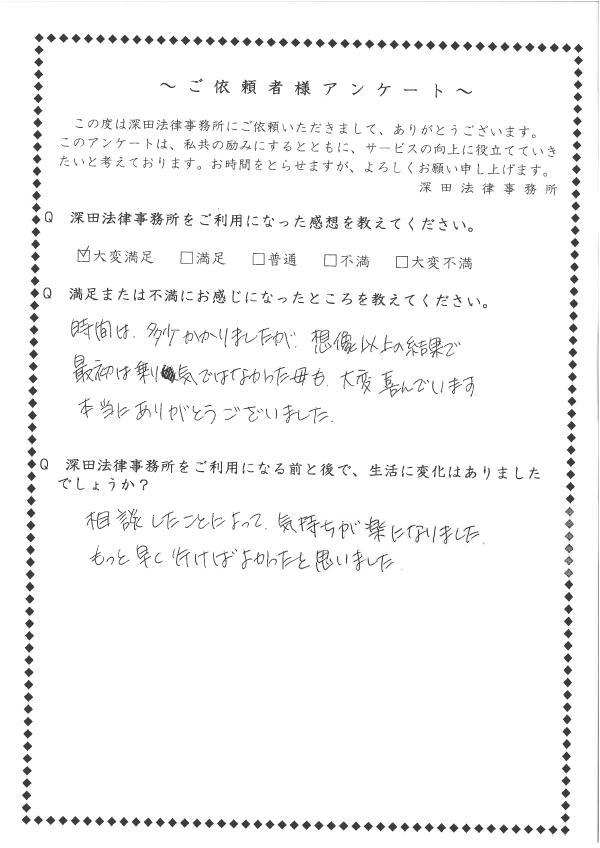 ～ご依頼者様アンケート～
この度は深田法律事務所にご依頼いただきまして、ありがとうございます。
このアンケートは、私共の励みにするとともに、サービスの向上に役立てていき
たいと考えております。お時間をとらせますが、よろしくお願い申し上げます。
深田法律事務所
Q 深田法律事務所をご利用になった感想を教えてください。
☑大変満足 □満足 □普通 □不満 □大変不満
Q 満足または不満にお感じになったところを教えてください。
時間は、多少かかりましたが、想像以上の結果で
最初は乗り気ではなかった母も、大変喜んでいます
本当にありがとうございました。
Q 深田法律事務所をご利用になる前と後で、生活に変化はありました
でしょうか？
相談したことによって、気持ちが楽になりました。
もっと早く行けばよかったと思いました。